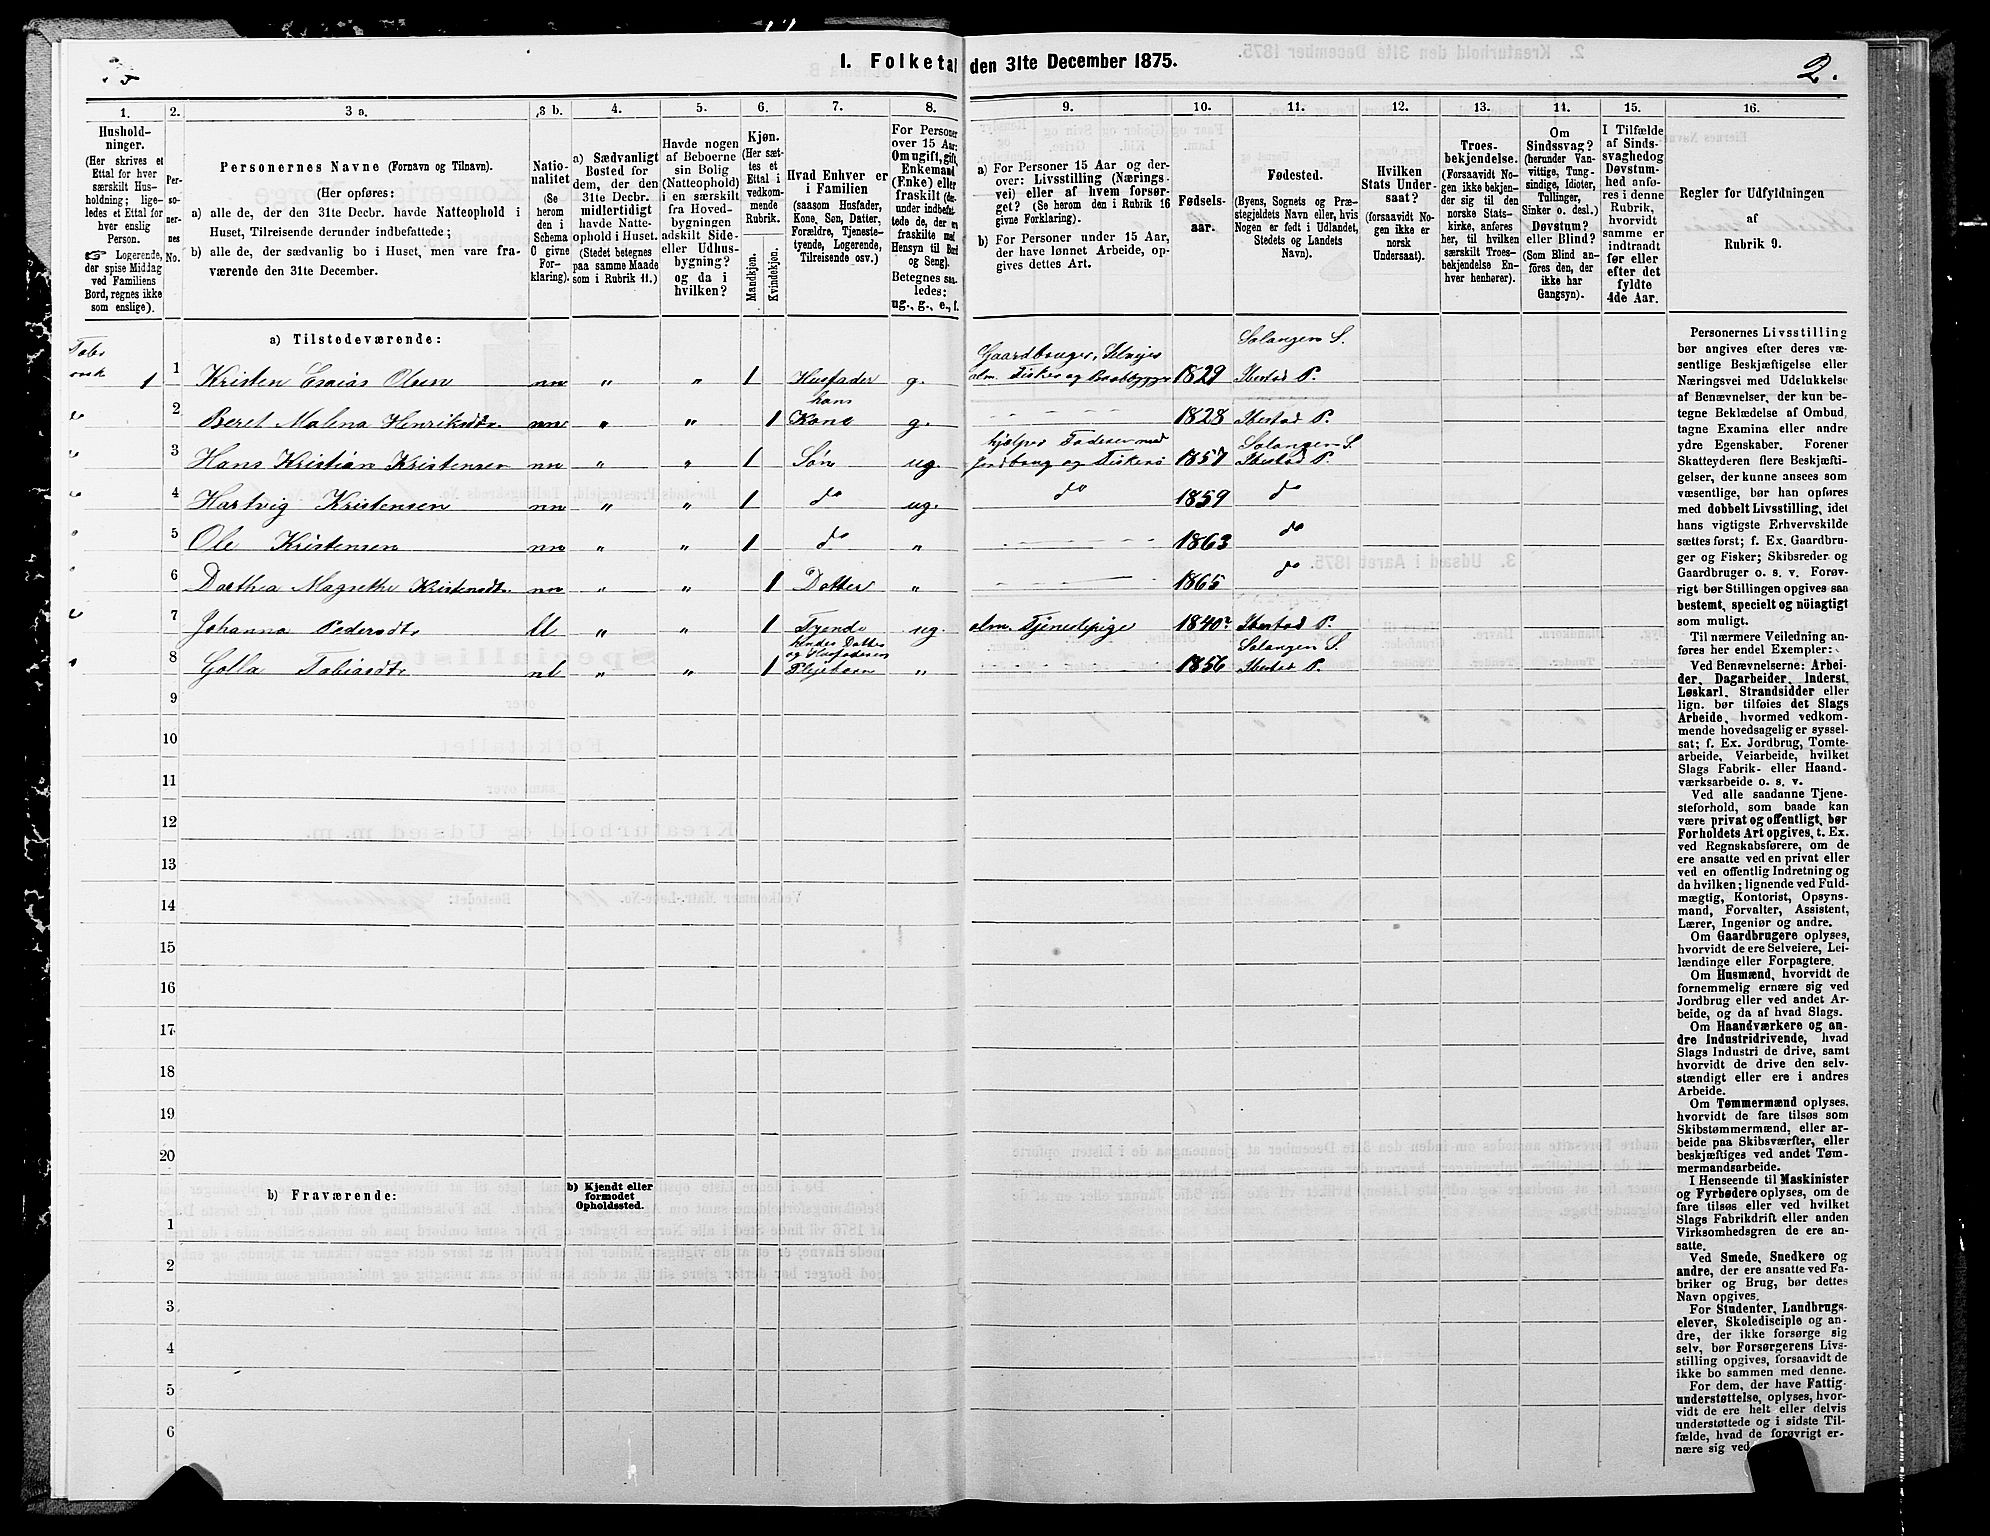 1. Folketal den 31te December 1875.
2.
1. 2. 3 a. 3 b. 4. 5. 6. 7. 8. 9. 10. 11. 12. 13. 14. 15. 16.
Hushold-
ninger.
(Her skrives et
Ettal for hver
særskilt Hus-
holdning; lige-
ledes et Ettal for
hver enslig
Person.
☞ Logerende,
der spise Middag
ved Familiens
Bord, regnes ikke
som enslige).
Per-
so-
ner-
nes
No.
Personernes Navne (Fornavn og Tilnavn).
(Her opføres:
a) alle de, der den 31te Decbr. havde Natteophold i
Huset, Tilreisende derunder indbefattede;
b) alle de, der sædvanlig bo i Huset, men vare fra-
værende den 31te December.
Natio-
nalitet
(Se
herom
den i
Schema
O givne
For-
klaring).
a) Sædvanligt
Bosted for
dem, der den
31te Decbr.
midlertidigt
havde Natte-
ophold i Huset.
(Stedet betegnes
paa samme Maade
som i Rubrik 11.)
Havde nogen
af Beboerne
sin Bolig
(Natteophold)
i en særskilt
fra Hoved-
bygningen
adskilt Side-
eller Udhus-
bygning?
og da i
hvilken?
Kjøn.
(Her sæt-
tes et
Ettal i
vedkom-
mende
Rubrik.
Mandkjøn.
Kvindekjøn.
Hvad Enhver er
i Familien
(saasom Husfader,
Kone, Søn, Datter,
Forældre, Tjeneste-
tyende, Logerende,
Tilreisende osv.)
For Personer
over 15 Aar:
Om ugift, gift,
Enkemand
(Enke) eller
fraskilt (der-
under indbefat-
tede de, der ere
fraskilte med
Hensyn til Bord
og Seng).
Betegnes saa-
ledes:
ug., g., e., f.
a) For Personer 15 Aar og der-
over: Livsstilling (Nærings-
vei) eller af hvem forsør-
get? (Se herom den i Rubrik 16
givne Forklaring).
b) For Personer under 15 Aar,
der have lønnet Arbeide, op-
gives dettes Art.
Fødsels-
aar.
Fødested.
(Byens, Sognets og Præ-
stegjeldets Navn eller, hvis
Nogen er født i Udlandet,
Stedets og Landets
Navn).
Hvilken
Stats Under-
saat?
(forsaavidt No-
gen ikke er
norsk
Undersaat).
Troes-
bekjendelse.
(Forsaavidt No-
gen ikke bekjen-
der sig til den
norske Stats-
kirke, anføres
her, til hvilken
særskilt Troes-
bekjendelse En-
hver henhører).
Om
Sindssvag?
(herunder Van-
vittige, Tung-
sindige, Idioter,
Tullinger,
Sinker o. desl.)
Døvstum?
eller Blind?
(Som Blind an-
føres den, der
ikke har
Gangsyn).
I Tilfælde
af Sinds-
svaghed og
Døvstum-
hed anfø-
res i denne
Rubrik,
hvorvidt
samme er
indtraadt
før eller
efter det
fyldte
4de Aar.
Regler for Udfyldningen
af
Rubrik 9.
a) Tilstedeværende:
1 1 Kristen Esaias Olsen nn „ „ 1 Husfader g. Gaardbruger, Selveier alm. Fisker og Baadbygger 1829 Salangen S. Ibestad P.
2 Beret Malena Henriksdtr. nn „ „ 1 hans Kone g. 1828 Ibestad P.
3 Hans Kristian Kristensen nn „ „ 1 Søn ug. hjælper Faderen med Jordbrug og Fiskeri 1857 Salangen S. Ibestad P.
4 Hartvig Kristensen nn „ „ 1 do ug. do 1859 do
5 Ole Kristensen nn „ „ 1 do „ 1863 do
6 Dorthea Magrethe Kristensdtr. nn „ „ 1 Datter „ 1865 do
7 Johanna Pedersdtr „ „ 1 Tyende ug. alm. Tjenestepige 1840 Ibestad P.
8 Golla Tobiasdtr „ „ 1 Pleiebarn „ 1856 Salangen S. Ibestad P.
9
10
11
12
13
14
15
16
17
18
19
20
b) Fraværende:
b) Kjendt eller
formodet
Opholdssted.
1
2
3
4
5
6
Personernes Livsstilling
bør angives efter deres væ-
sentlige Beskjæftigelse eller
Næringsvei med Udelukkelse
af Benævnelser, der kun be-
tegne Beklædelse af Ombud,
tagne Examina eller andre
ydre Egenskaber. Forener
Skatteyderen flere Beskjæfti-
gelser, der kunne ansees som
væsentlige, bør han opføres
med dobbelt Livsstilling, idet
hans vigtigste Erhvervskilde
sættes først; f. Ex. Gaardbru-
ger og Fisker; Skibsreder og
Gaardbruger o. s. v. Forøv-
rigt bør Stillingen opgives saa
bestemt, specielt og nöiagtigt
som muligt.
Til nærmere Veiledning an-
føres her endel Exempler:
Ved Benævnelserne: Arbei-
der, Dagarbeider, Inderst,
Løskarl, Strandsidder eller
lign. bør tilføies det Slags
Arbeide, hvormed vedkom-
mende hovedsagelig er syssel-
sat; f. Ex. Jordbrug, Tomte-
arbeide, Veiarbeide, hvilket
Slags Fabrik- eller Haand-
værksarbeide o. s. v.
Ved alle saadanne Tjene-
steforhold, som baade kan
være privat og offentligt, bør
Forholdets Art opgives, t. Ex.
ved Regnskabsførere, om de
ere ansatte ved en privat eller
ved en offentlig Indretning og
da hvilken; lignende ved Fuld-
mægtig, Kontorist, Opsyns-
mand, Forvalter, Assistent,
Lærer, Ingeniør og andre.
Om Gaardbrugere oplyses,
hvorvidt de ere Selveiere, Lei-
lændinge eller Forpagtere.
Om Husmænd, hvorvidt de
fornemmelig ernære sig ved
Jordbrug eller ved andet Ar-
beide, og da af hvad Slags.
Om Haandværkere og an-
dre Industridrivende, hvad
Slags Industri de drive, samt
hvorvidt de drive den selv-
stændigt eller ere i andres
Arbeide.
Om Tømmermænd oplyses,
hvorvidt de fare tilsøs som
Skibstømmermænd, eller ar-
beide paa Skibsværfter, eller
beskjæftiges ved andet Tøm-
mermandsarbeide.
I Henseende til Maskinister
og Fyrbødere oplyses, om de
fare tilsøs eller ved hvilket
Slags Fabrikdrift eller anden
Virksomhedsgren de ere an-
satte.
Ved Smede, Snedkere og
andre, der ere ansatte ved Fa-
briker og Brug, bør dettes
Navn opgives.
For Studenter, Landbrugs-
elever, Skoledisciple og an-
dre, der ikke forsørge sig
selv, bør Forsørgerens Livs-
stilling opgives, forsaavidt de
ikke bo sammen med denne.
For dem, der have Fattig-
understøttelse, oplyses, hvor-
vidt de ere helt eller delvis
understøttede og i sidste Til-
fælde, hvad de forøvrigt er-
nære sig ved